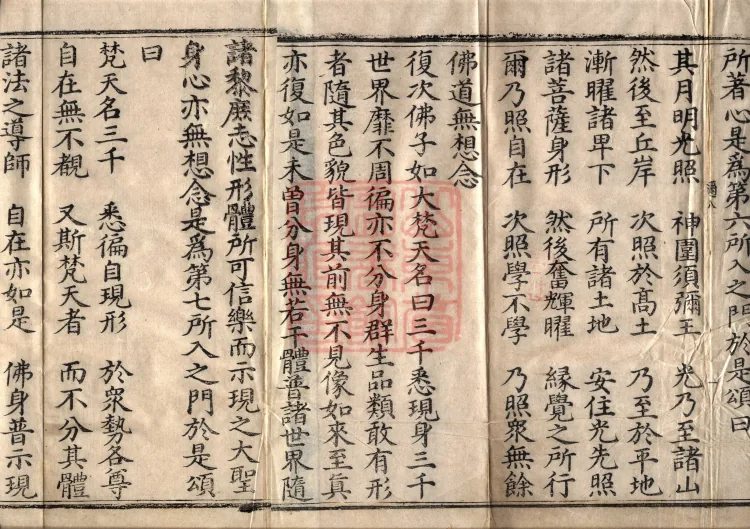 所著心是爲第六所入之門於是頌曰
其月明光照　神圍須彌王　光乃至諸山
然後至丘岸　次照於高土　乃至於平地
漸曜諸卑下　所有諸土地　安住光先照
諸菩薩身形　然後奮輝曜　緣覺之所行
爾乃照自在　次照學不學　乃照衆無餘
佛道無想念
復次佛子如大梵天名曰三千悉現身三千
世界靡不周徧亦不分身群生品類敢有形
者隨其色貌皆現其前無不見像如來至真
亦復如是未曾分身無若干體普諸世界隨
諸黎庶志性形體所可信樂而示現之大聖
身心亦無想念是爲第七所入之門於是頌
曰
梵天名三千　悉徧自現形　於衆勢各尊
自在無不覩　又斯梵天者　而不分其體
諸法之導師　自在亦如是　佛身普示現